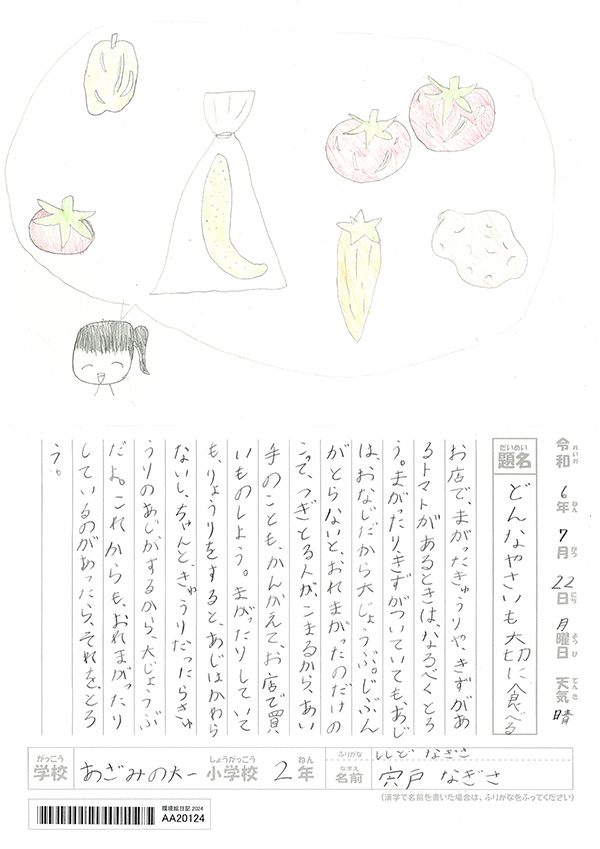 令和 6年 7月 22日 月曜日 天気 晴
れいわ ねん がつ にち ようび てんき
だいめい
題名 どんなやさいも大切に食べる
お店で、まがったきゅうりや、きずがあ
るトマトがあるときは、なるべくとろ
う。まがったり、きずがついていても、あじ
は、おなじだから大じょうぶ。じぶん
がとらないと、おれまがったのだけの
こって、つぎとる人が、こまるから、あい
手のことも、かんがえて、お店で買
いものしよう。まがったりしていて
も、りょうりをすると、あじはかわら
ないし、ちゃんと、きゅうりだったらきゅ
うりのあじがするから、大じょうぶ
だよ。これからも、おれまがったり
しているのがあったら、それを、とろ
う。
がっこう しょうがっこう ねん
学校 あざみの㐧一 小学校 2年
ふりがな ししど なぎさ
なまえ
名前 宍戸 なぎさ
(漢字で名前を書いた場合は、ふりがなをふってください)
環境絵日記 2024
AA20124